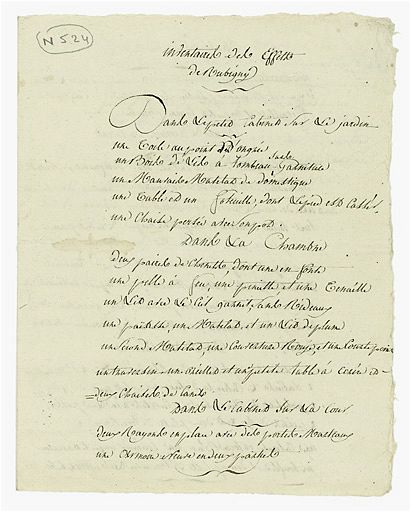 N 524
inventaire des Effets
de Rubigny
Dans le petit Cabinet sur le jardin
une Toile au point
un Bois de Lido à Tombeau sans garniture
un Mauvais Matelas de domestique
une table et un foteuille, dont le pied est Cassé
une Chaise percée avec son pot.
Dans La Chambre
deux paires de Chenets, dont une en fonte
une pelle à feu, une pincette et une Tenaille
un Lid avec le Ciel garnit, sans Rideaux
une paillasse, un Matelad, et un Lid de plume
un second Matelad, une Couverture Rouge, et une
un traversin, un oreiller et une petite table à et
deux Chaises de
Dans le Cabinet sur La Cour
deux Rayons en place avec des portes
une Armoire en deux parties